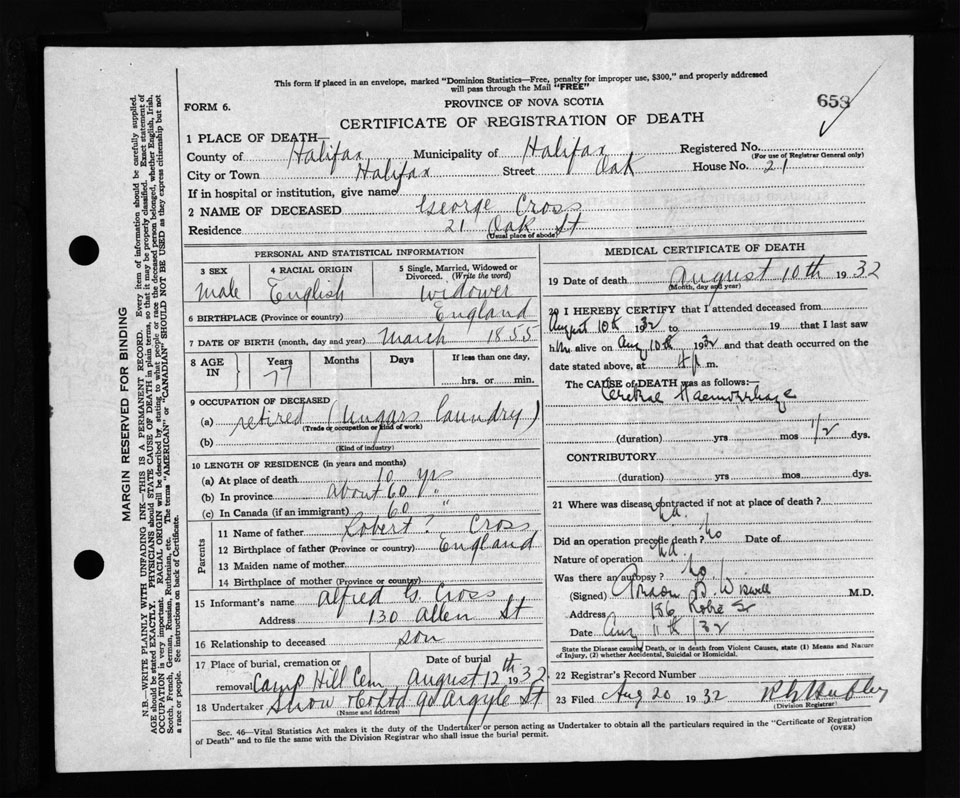 This form if placed in an envelope, marked "Dominion Statistics—Free, penalty for improper use, $300," and properly addressed
will pass through the Mail "FREE"
FORM 6.
PROVINCE OF NOVA SCOTIA
653
CERTIFICATE OF REGISTRATION OF DEATH
1 PLACE OF DEATH—
County of Halifax Municipality of Halifax Registered No.
(For use of Registrar General only)
City or Town Halifax Street Oak House No. 21
If in hospital or institution, give name
2 NAME OF DECEASED George Cross
Residence 21 Oak St
(Usual place of abode)
PERSONAL AND STATISTICAL INFORMATION
3 SEX
Male
4 RACIAL ORIGIN
English
5 Single, Married, Widowed or
Divorced. (Write the word)
widower
6 BIRTHPLACE (Province or country) England
7 DATE OF BIRTH (month, day and year) March 1855
8 AGE
IN
Years
77
Months
Days
If less than one day,
hrs. or min.
9 OCCUPATION OF DECEASED
(a) retired (Ungars laundry)
(Trade or occupation or kind of work)
(b)
(Kind of industry)
10 LENGTH OF RESIDENCE (in years and months)
(a) At place of death 10 yrs
(b) In province about 60 "
(c) In Canada (if an immigrant) 60 "
Parents
11 Name of father Robert? Cross
12 Birthplace of father (Province or country) England
13 Maiden name of mother
14 Birthplace of mother (Province or country)
15 Informant's name Alfred G. Cross
Address 130 Allen St
16 Relationship to deceased son
17 Place of burial, cremation or
removal Camp Hill Cem
Date of burial
August 12th 1932
18 Undertaker Snow Co Ltd 90 Argyle St
(Name and address)
MEDICAL CERTIFICATE OF DEATH
19 Date of death August 10th 1932
(Month, day and year)
20 I HEREBY CERTIFY that I attended deceased from
August 10th 1932 to 19 that I last saw
him alive on Aug 10th 1932 and that death occurred on the
date stated above, at 4 p m.
The CAUSE of DEATH was as follows:—
Cerebral Haemorrhage
(duration) yrs mos 1/2 dys.
CONTRIBUTORY
(duration) yrs mos dys.
21 Where was disease contracted if not at place of death?
Did an operation precede death? no Date of
Nature of operation
Was there an autopsy? no
(Signed) B. Wiswell M.D.
Address 186 Robie St
Date Aug 11th/32
State the Disease causing Death, or in death from Violent Causes, state (1) Means and Nature
of Injury, (2) whether Accidental, Suicidal or Homicidal.
22 Registrar's Record Number
23 Filed Aug 20 1932
(Division Registrar)
Sec. 46—Vital Statistics Act makes it the duty of the Undertaker or person acting as Undertaker to obtain all the particulars required in the "Certificate of Registration
of Death" and to file the same with the Division Registrar who shall issue the burial permit.
(OVER)
MARGIN RESERVED FOR BINDING
N.B.—WRITE PLAINLY WITH UNFADING INK—THIS IS A PERMANENT RECORD. Every item of information should be carefully supplied.
AGE should be stated EXACTLY. PHYSICIANS should STATE CAUSE OF DEATH in plain terms, so that it may be properly classified. Exact statement of
OCCUPATION is very important. RACIAL ORIGIN will be described by stating to what people or race the deceased person belonged, whether English, Irish,
Scotch, French, German, Russian, Ruthenian, etc. The terms "AMERICAN" or "CANADIAN" SHOULD NOT BE USED as they express citizenship but not
a race or people. See instructions on back of Certificate.